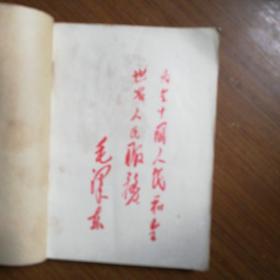 为全中国人民和全
世界人民服务
毛泽东